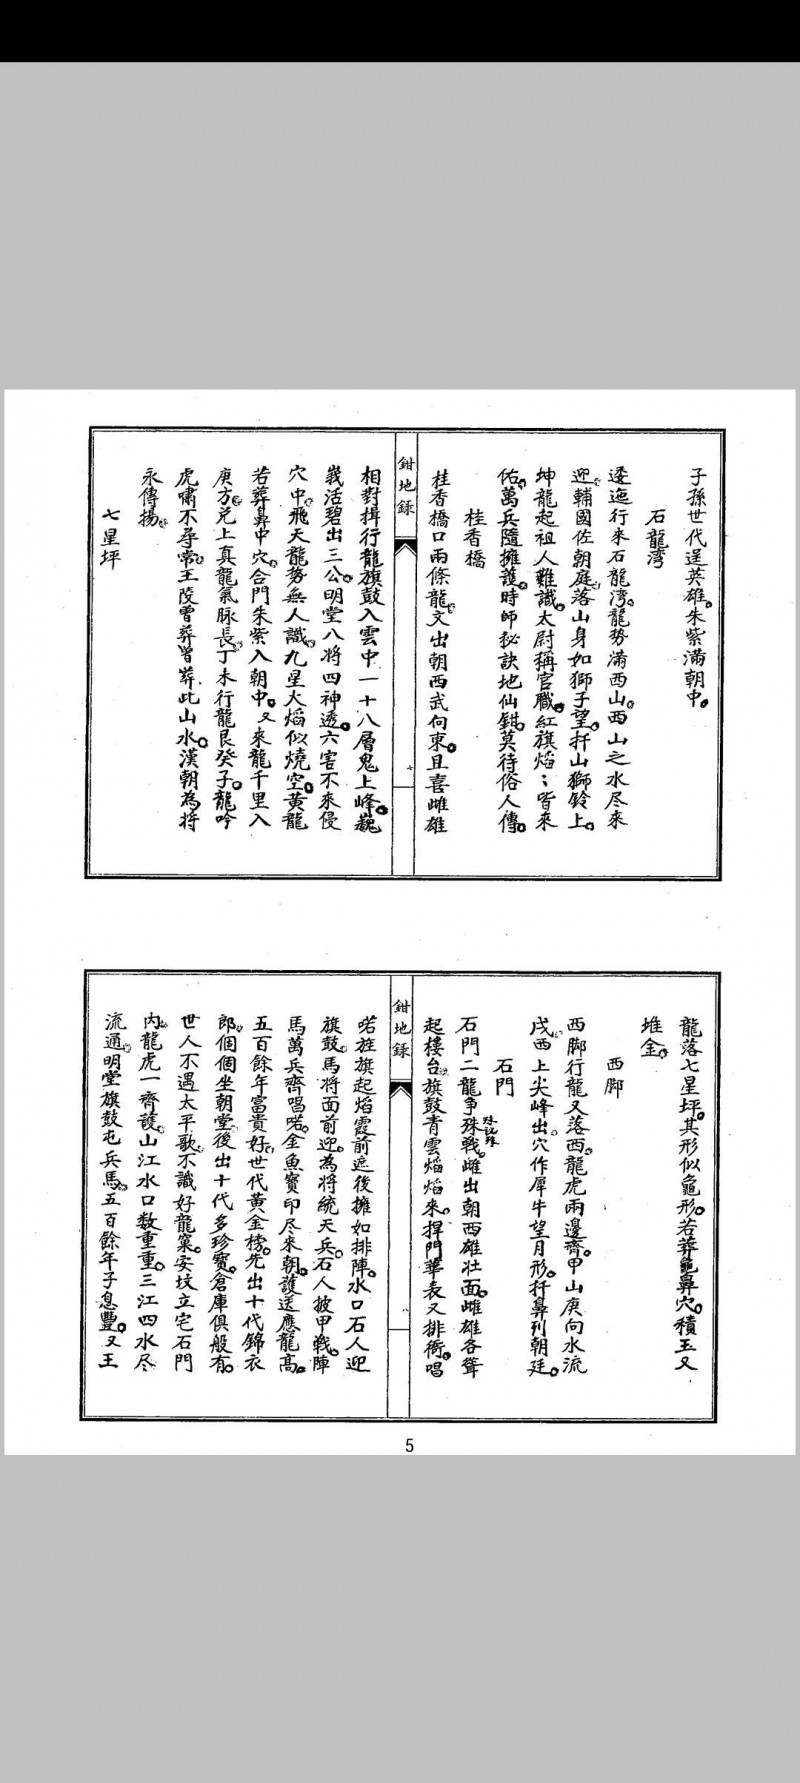 子孫世代逞英雄。朱紫滿朝中。
石龍湾
逶迤行來石龍湾。龍勢滿西山。西山之水尽來
迎。輔國佐朝庭。落山身如獅子望。扦山獅鈴上。
坤龍起祖人難識。太尉稱官職。紅旗焰〻皆來
佑。萬兵隨擁護。時師秘訣地仙鉗。莫待俗人傳。
桂香橋
桂香橋口兩條龍。文出朝西武向東。且喜雌雄
鉗地錄
七
相對揖。行龍旗鼓入雲中。一十八層鬼上峰。巍
峩活碧出三公。明堂八将四神透。六害不來侵
穴中。飛天龍勢無人識。九星大焰似燒空。黄龍
若葬鼻中穴。合門朱紫入朝中。又來龍千里入
庚方。兌上真龍氣脉長。丁未行龍艮癸子。龍吟
虎嘯不尋常。王陵曽葬曽葬此山水。漢朝為将
永傳揚。
七星坪
龍落七星坪。其形似龜形。若葬龜鼻穴。積玉又
堆金。
西脚
西脚行龍又落西。龍虎兩邊齊。甲山庚向水流
戌。西上尖峰出。穴作犀牛望月形。扦鼻列朝廷。
石門
石門二龍爭珠戰。雌出朝西雄壮面。雌雄各聳
起樓台。旗鼓青雲焰焰來。捍門華表又排衙。唱
鉗地錄
八
喏旌旗起焰霞。前遮後擁如排陣。水口石人迎
旗鼓。馬将面前迎。為将統天兵。石人披甲戰。陣
馬萬兵齊唱喏。金魚寶印尽來朝。護送應龍高。
五百餘年富貴好。世代黄金榜。先出十代錦衣
郎。個個坐朝堂。後出十代多珍寶。倉庫俱般有。
世人不遇太平歌。不識好龍窠。安坟立宅石門
内。龍虎一齊護。山江水口数重重。三江四水尽
流通。明堂旗鼓屯兵馬。五百餘年子息豐。又王
5